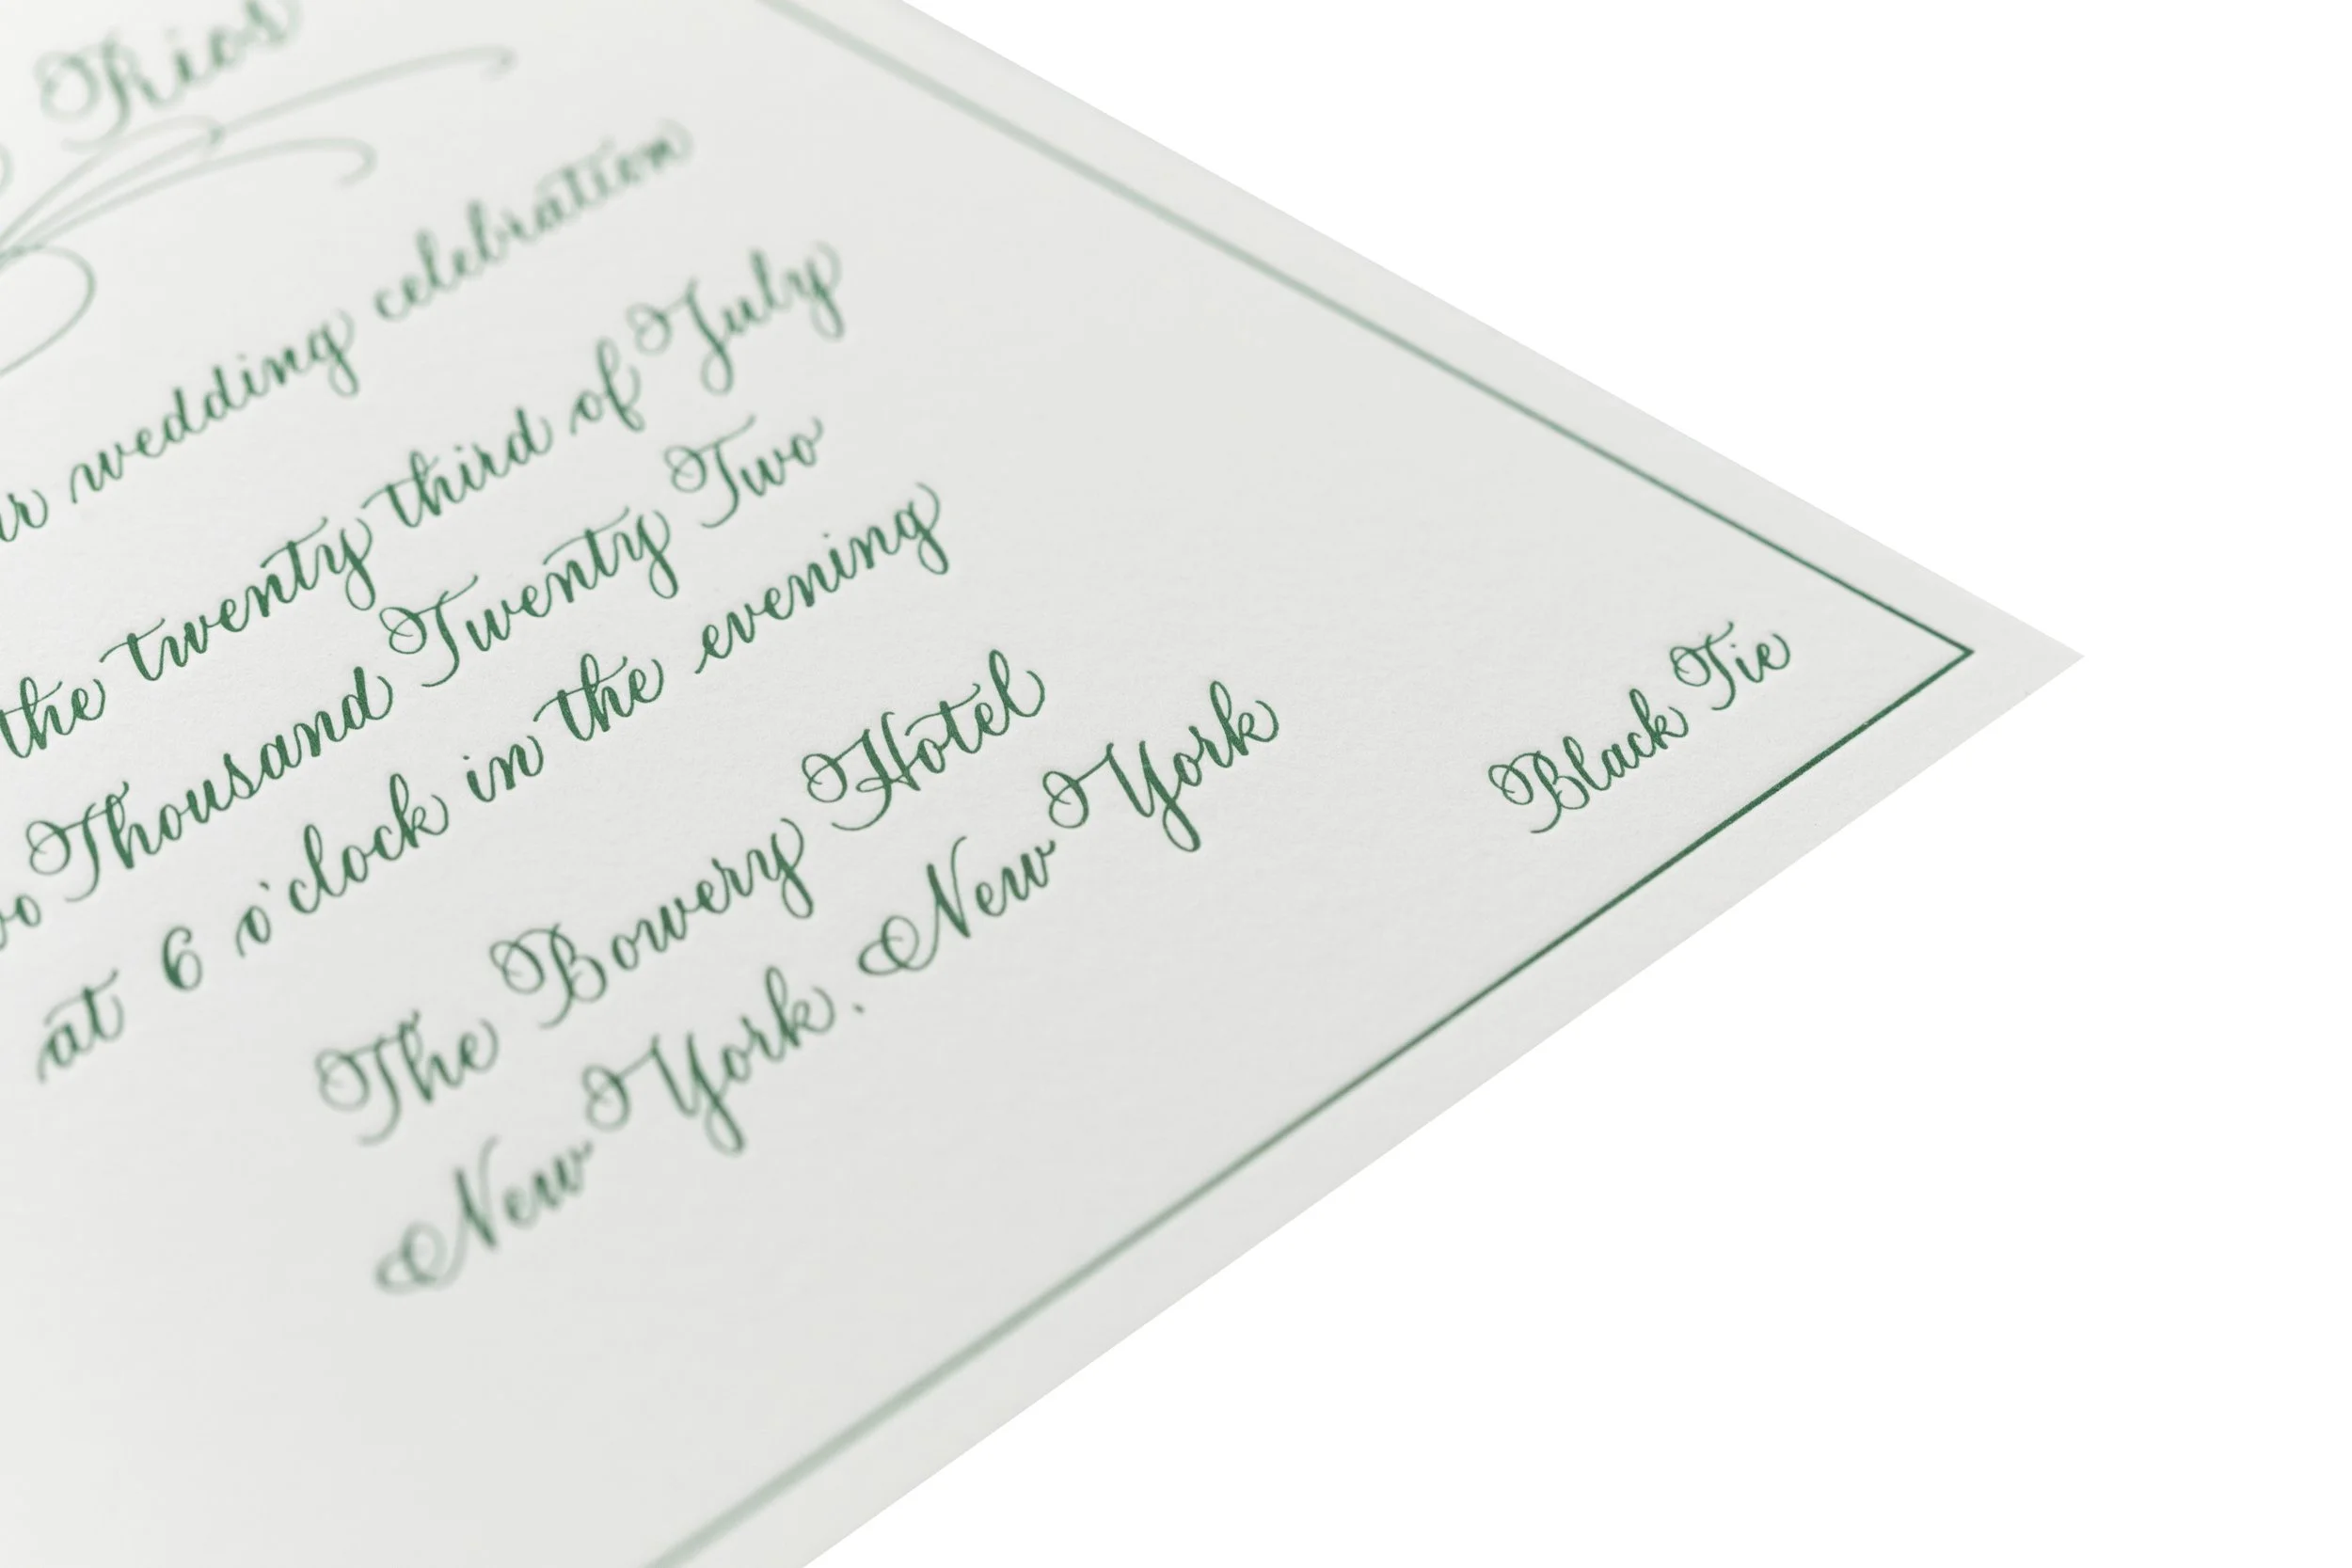 Rios
wedding celebration
the twenty third of July
Thousand Twenty Two
at 6 o'clock in the evening
The Bowery Hotel
New York, New York
Black Tie